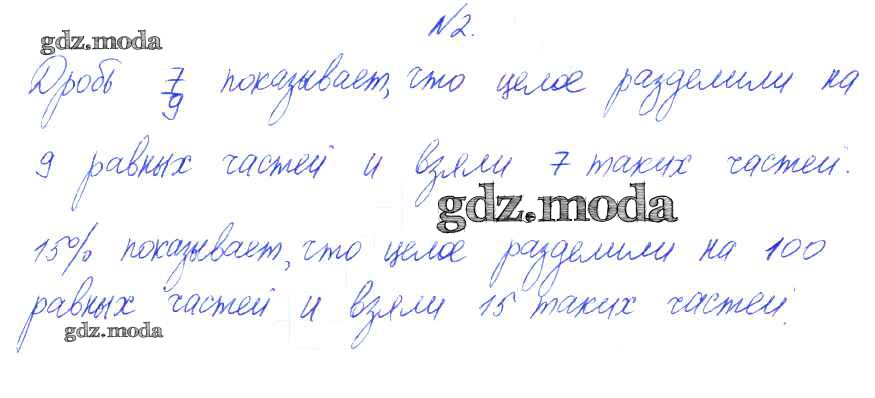 №2.
gdz.moda
Дробь 7/9 показывает, что целое разделили на
9 равных частей и взяли 7 таких частей.
gdz.moda
15% показывает, что целое разделили на 100
равных частей и взяли 15 таких частей.
gdz.moda